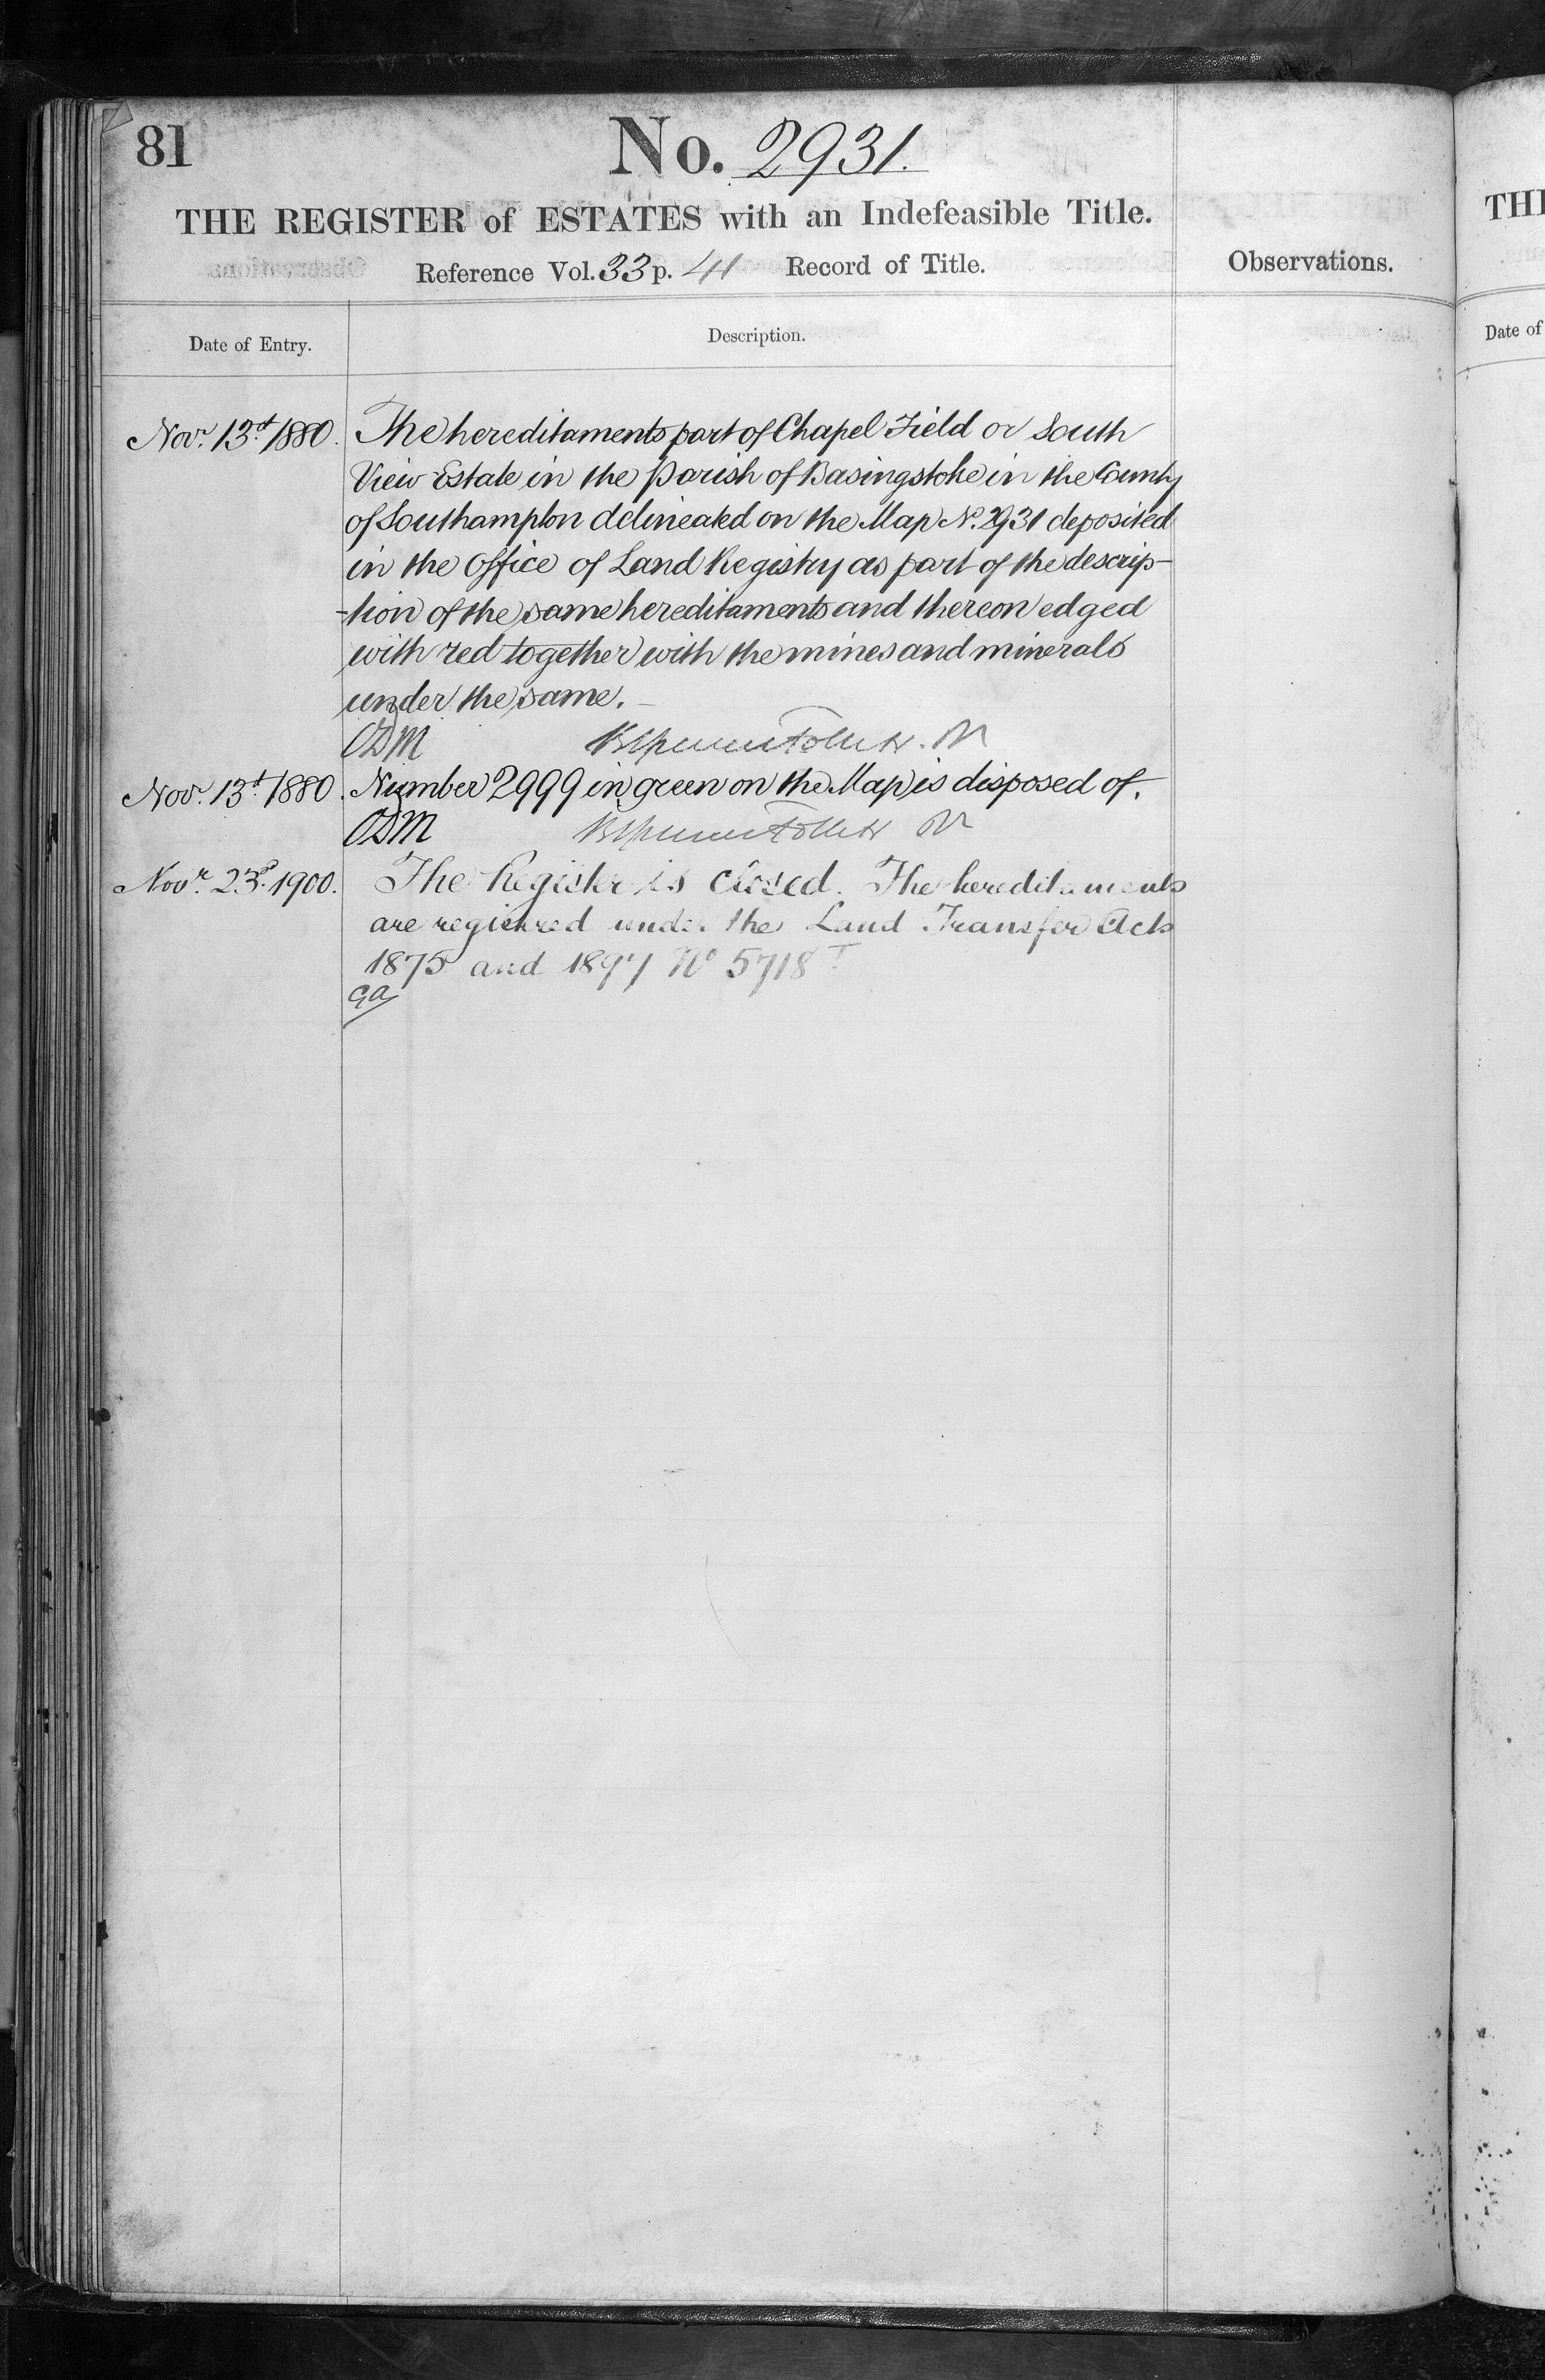 81
No. 2931.
THE REGISTER of ESTATES with an Indefeasible Title.
Reference Vol. 33 p. 41 Record of Title.
Observations.
Date of Entry.
Description.
Novr. 13th 1880. The hereditaments part of Chapel Field or South
View Estate in the Parish of Basingstoke in the County
of Southampton delineated on the Map No. 2931 deposited
in the Office of Land Registry as part of the descrip-
-tion of the same hereditaments and thereon edged
with red together with the mines and minerals
under the same.
Novr. 13th 1880. Number 2999 in green on the Map is disposed of.
Novr. 23rd 1900. The Register is closed. The hereditaments
are registered under the Land Transfer Acts
1875 and 1897 No 5718
THE
Date of